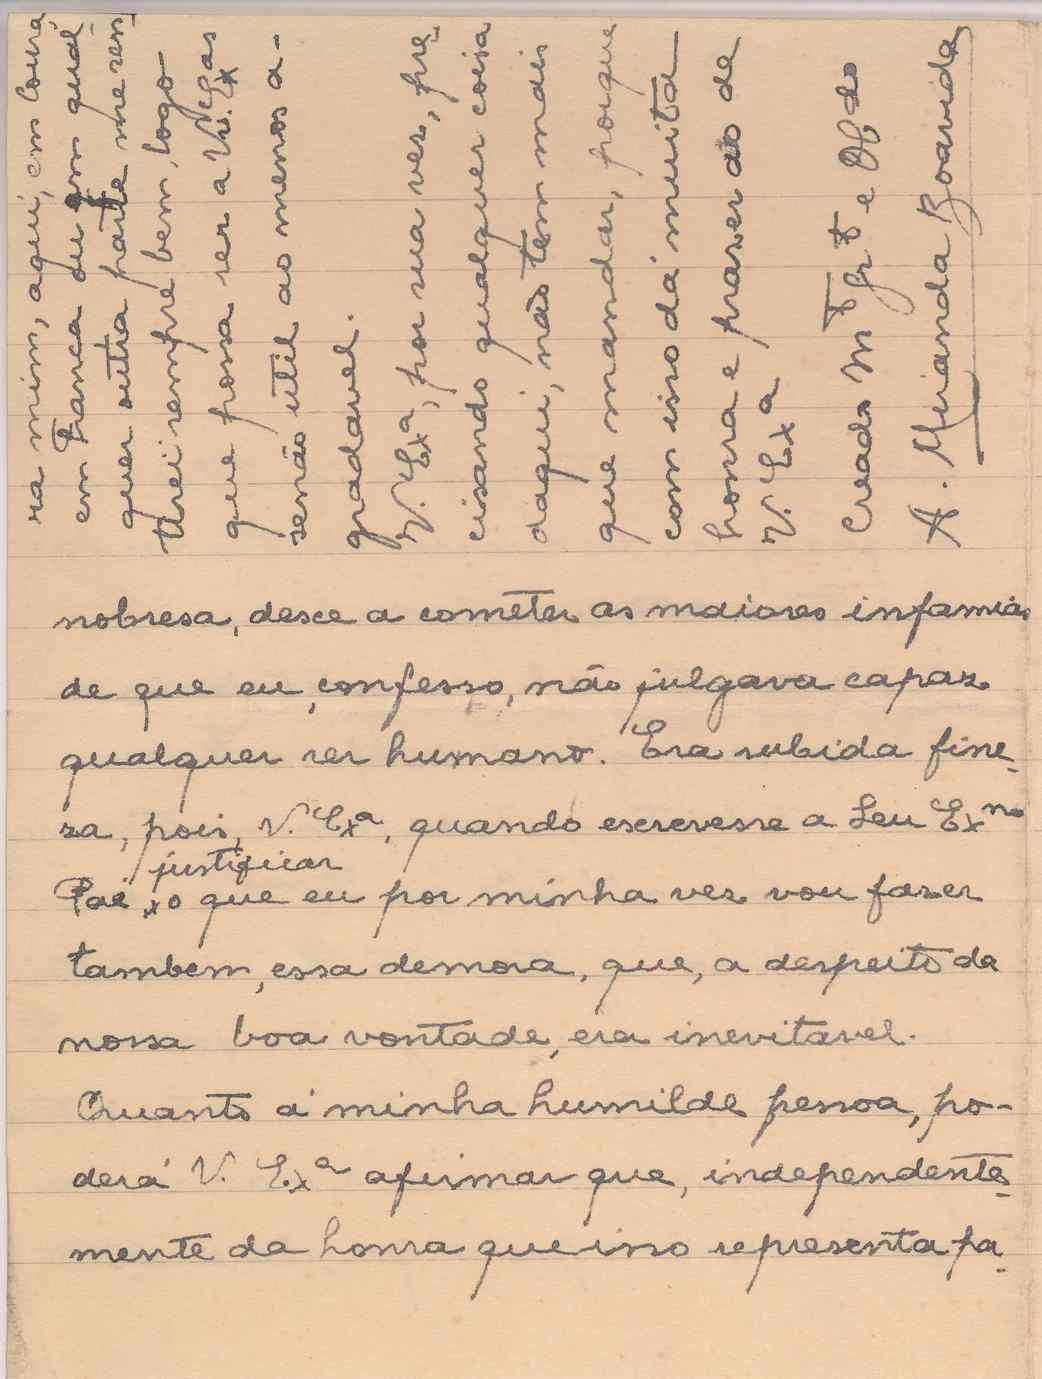 nobresa, desce a cometer as maiores infamias
de que eu, confesso, não julgava capaz
qualquer ser humano. Era subida fine-
za, pois, V. Exª, quando escrevesse a Seu Exmo
justificar
Pai, o que eu por minha vez vou fazer
tambem, essa demora, que, a despeito da
nossa boa vontade, era inevitavel.
Quanto á minha humilde pessoa, po-
derá V. Exª afirmar que, independente-
mente da honra que isso representa pa-
ra mim, aqui, em Coura,
em França ou em qual-
quer outra parte me sen-
tirei sempre bem, logo
que possa ser a V. Exas
senão util ao menos a-
gradavel.
V. Exª, por sua vez, pre-
cisando qualquer coisa
daqui, não tem mais
que mandar, porque
com isso dá muita
honra e prazer ao de
V. Exª
Creado mto grto e Obdo
A. Miranda Boavida